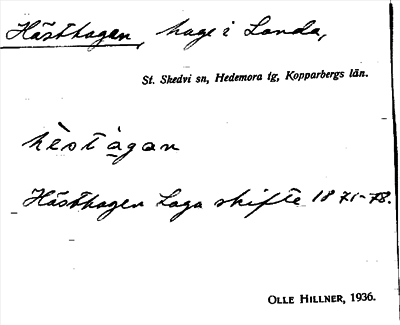 Hästhagen, hage i Landa,
St. Skedvi sn, Hedemora tg, Kopparbergs län.
hèstàgan
Hästhagen Laga skifte 1871-78.
OLLE HILLNER, 1936.